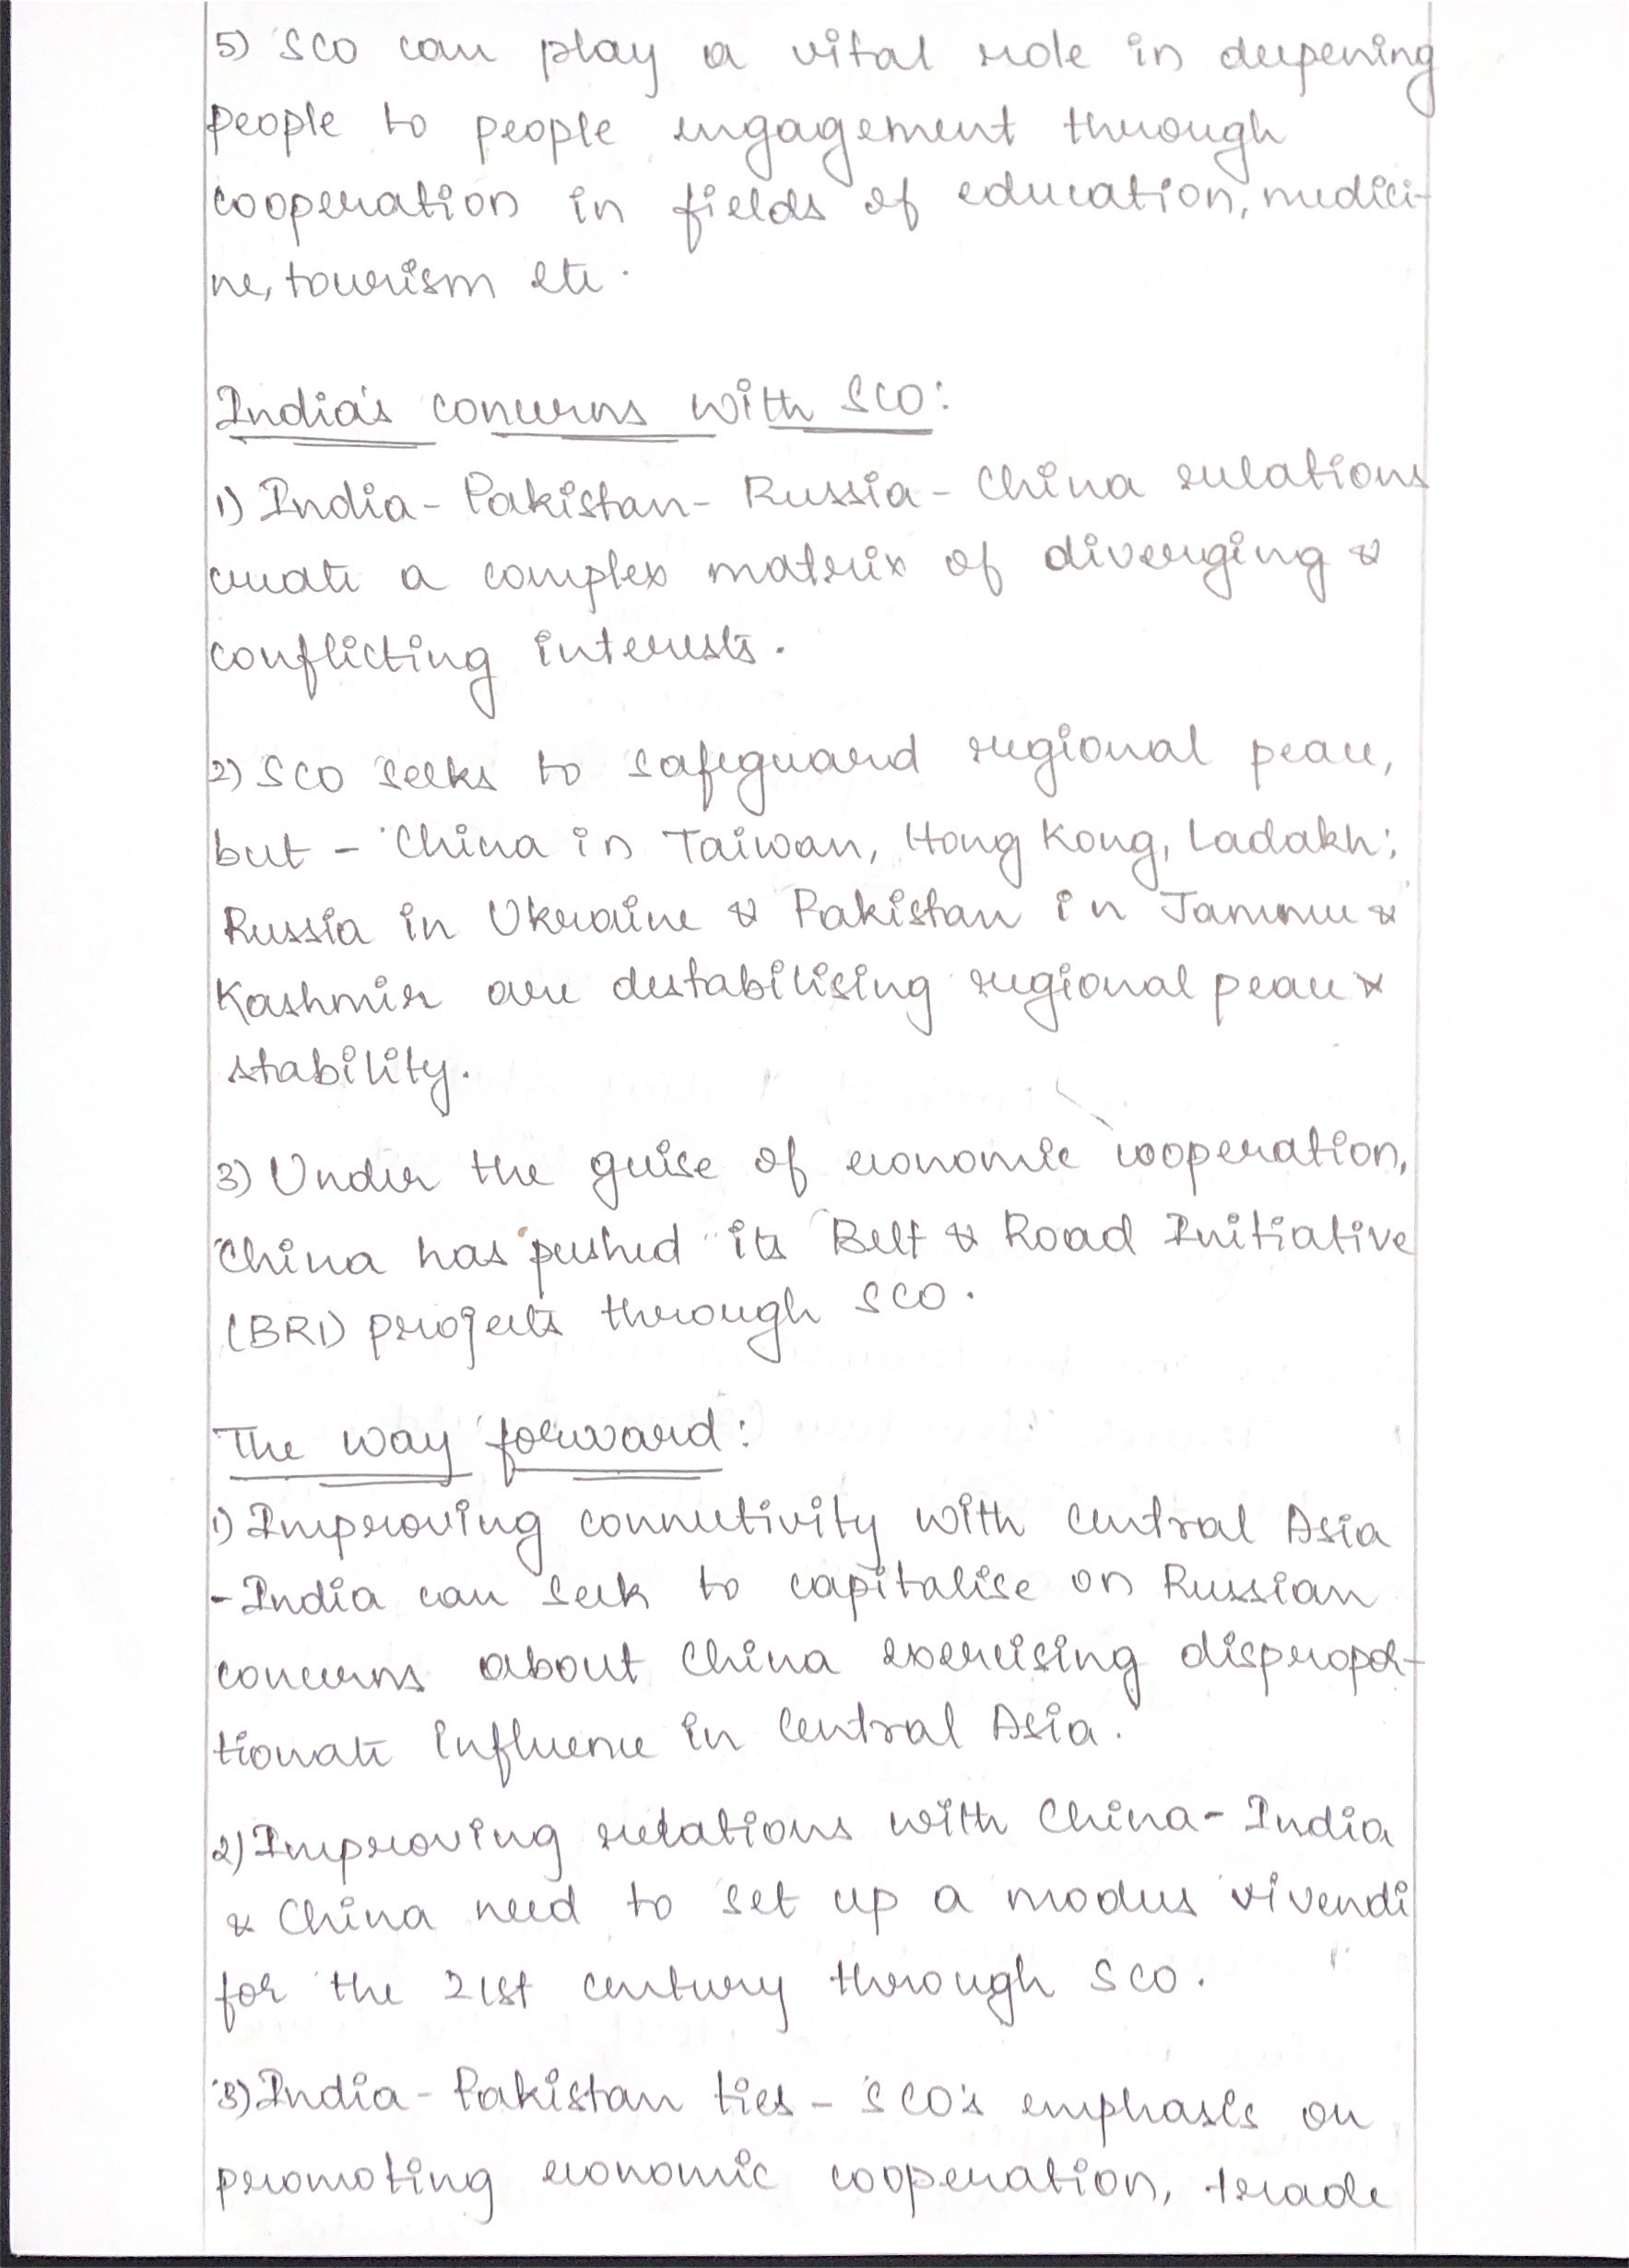 5) SCO can play a vital role in deepening
people to people engagement through
cooperation in fields of education, medici-
ne, tourism etc.
India's concerns with SCO:
1) India - Pakistan - Russia - China relations
create a complex matrix of diverging &
conflicting interests.
2) SCO seeks to safeguard regional peace,
but - China in Taiwan, Hong Kong, Ladakh;
Russia in Ukraine & Pakistan in Jammu &
Kashmir are destabilising regional peace &
stability.
3) Under the guise of economic cooperation,
China has pushed its Belt & Road Initiative
(BRI) projects through SCO.
The way forward:
1) Improving connectivity with Central Asia
- India can seek to capitalise on Russian
concerns about China exercising dispropor-
tionate influence in Central Asia.
2) Improving relations with China - India
& China need to set up a modus vivendi
for the 21st century through SCO.
3) India - Pakistan ties - SCO's emphasis on
promoting economic cooperation, trade